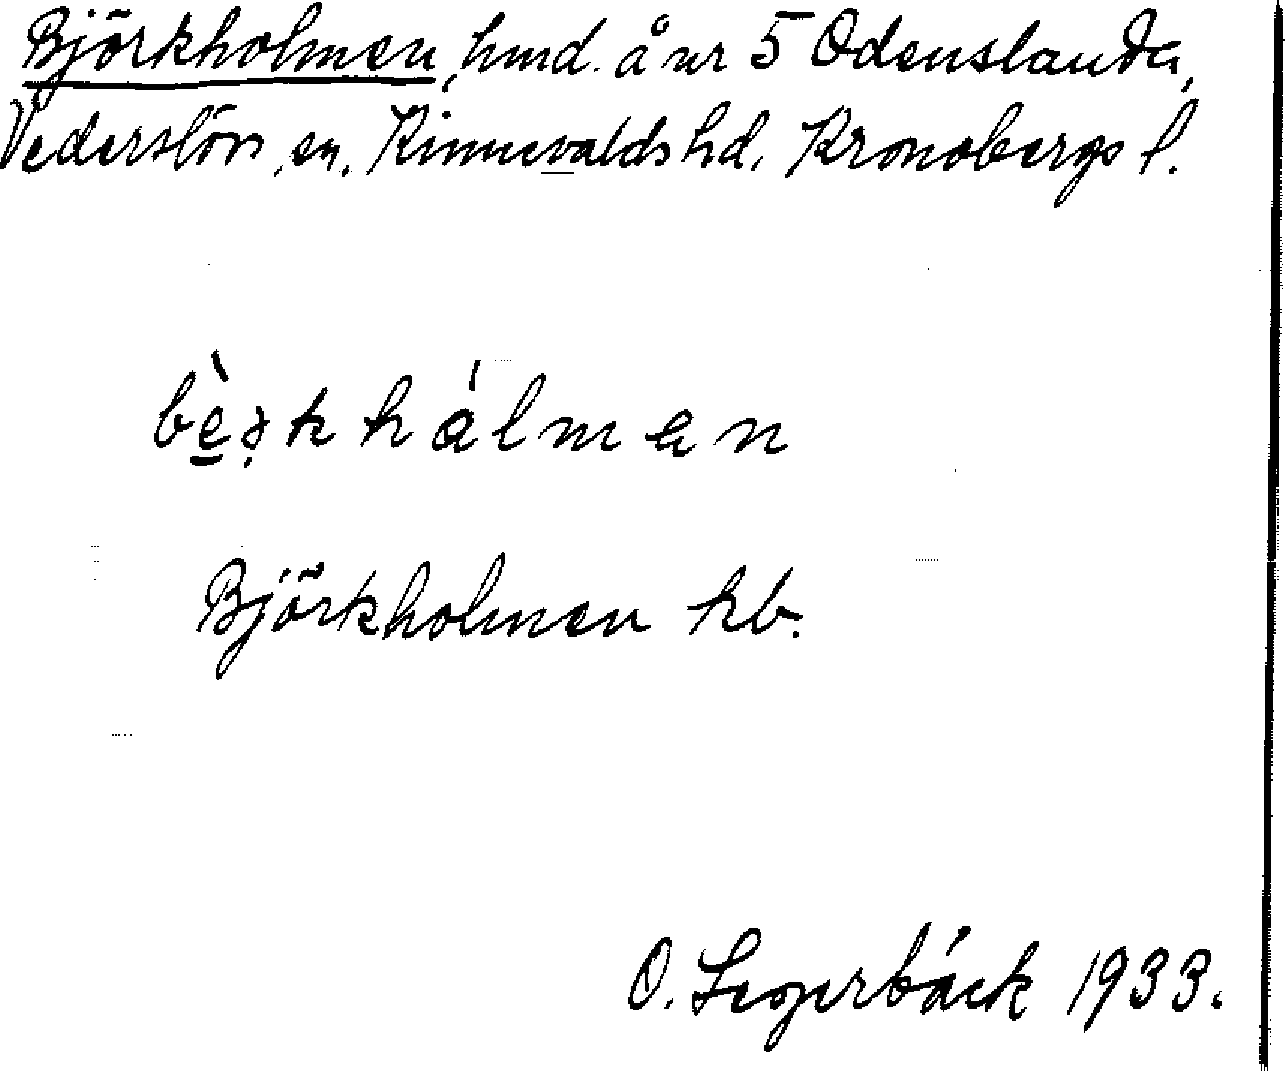 Björkholmen, hmd. å nr 5 Odenslanda,
Vederslövs sn. Kinnevalds hd. Kronobergs l.
Björkholmen kb.
O. Segerbäck 1933.